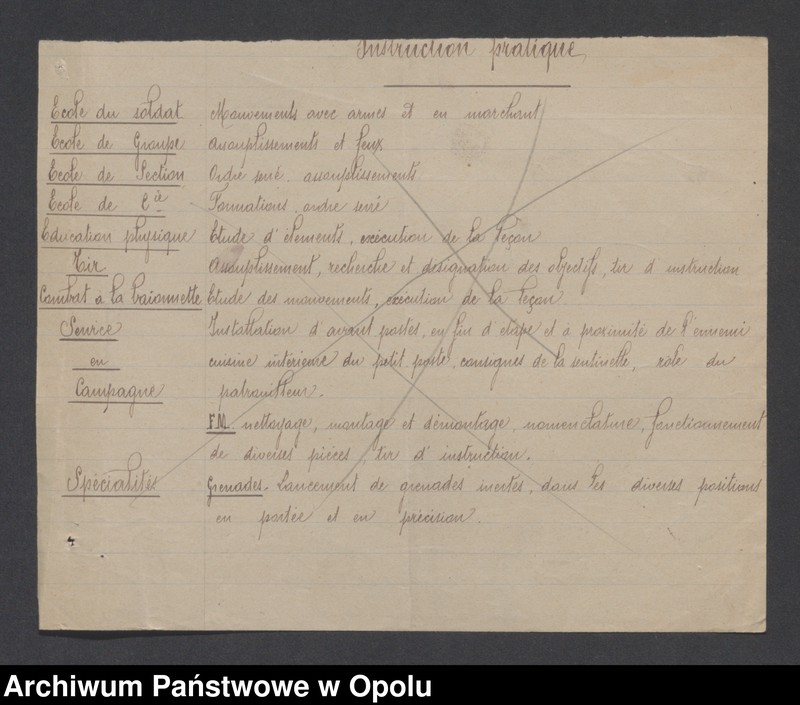 Instruction pratique
Ecole du soldat Mouvements avec armes et en marchant
Ecole de Groupe assouplissements et feux
Ecole de Section Ordre serré assouplissements
Ecole de Cie Formations, ordre serré
Education physique Etude d'élements, exécution de la leçon
Tir Assouplissement, recherche et désignation des objectifs, tir d'instruction
Combat à la baionnette Etude des mouvements, exécution de la leçon
Service Installation d'avant postes, en fin d'etape et à proximité de l'ennemi
en cuisine intérieure du petit poste, consignes de la sentinelle, rôle du
Campagne patrouilleur.
F.M. nettoyage, montage et démontage, nomenclature, fonctionnement
de diverses pièces, tir d'instruction.
Spécialités Grenades. Lancement de grenades inertes, dans les diverses positions
en portée et en précision.
Archiwum Państwowe w Opolu